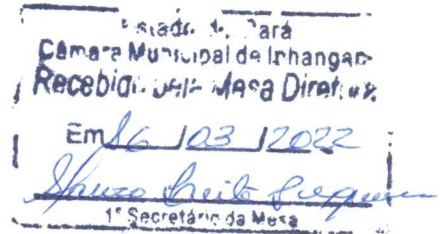 Estado do Pará
Câmara Municipal de Inhangap
Recebido pela Mesa Diretora
Em 16 / 03 / 2022
1º Secretário da Mesa